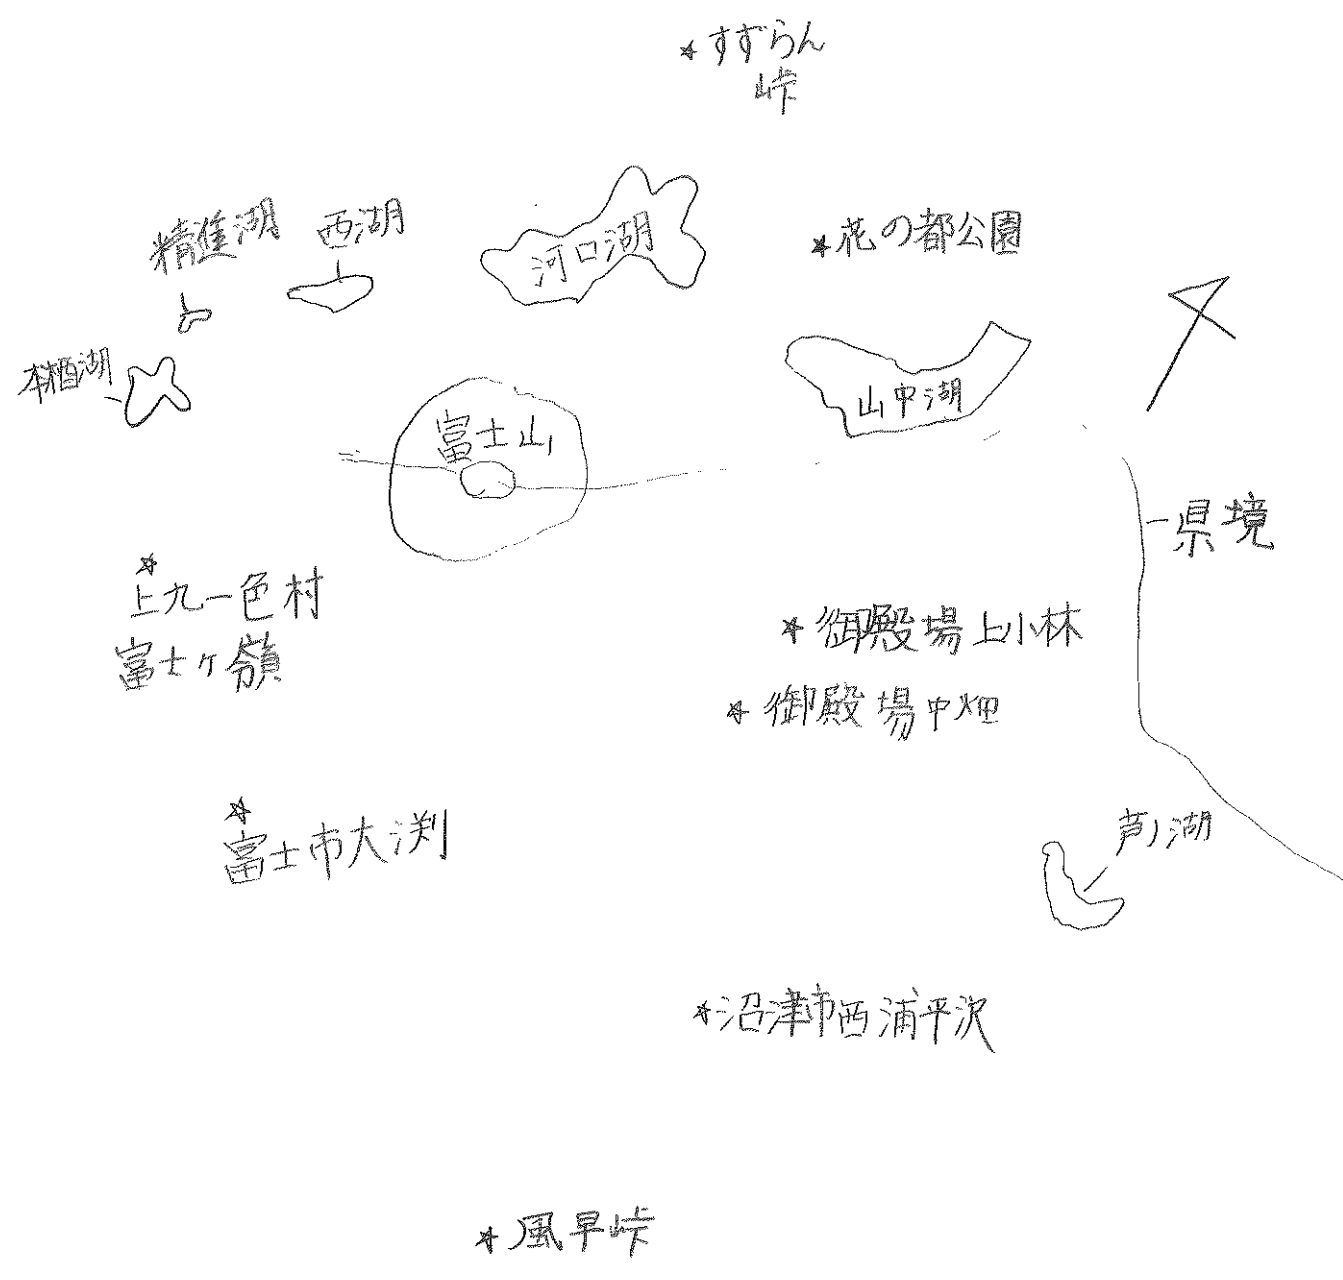 すずらん
峠
精進湖
西湖
河口湖
花の都公園
本栖湖
山中湖
富士山
県境
上九一色村
富士ヶ嶺
御殿場上小林
御殿場中畑
富士市大渕
芦ノ湖
沼津市西浦平沢
風早峠